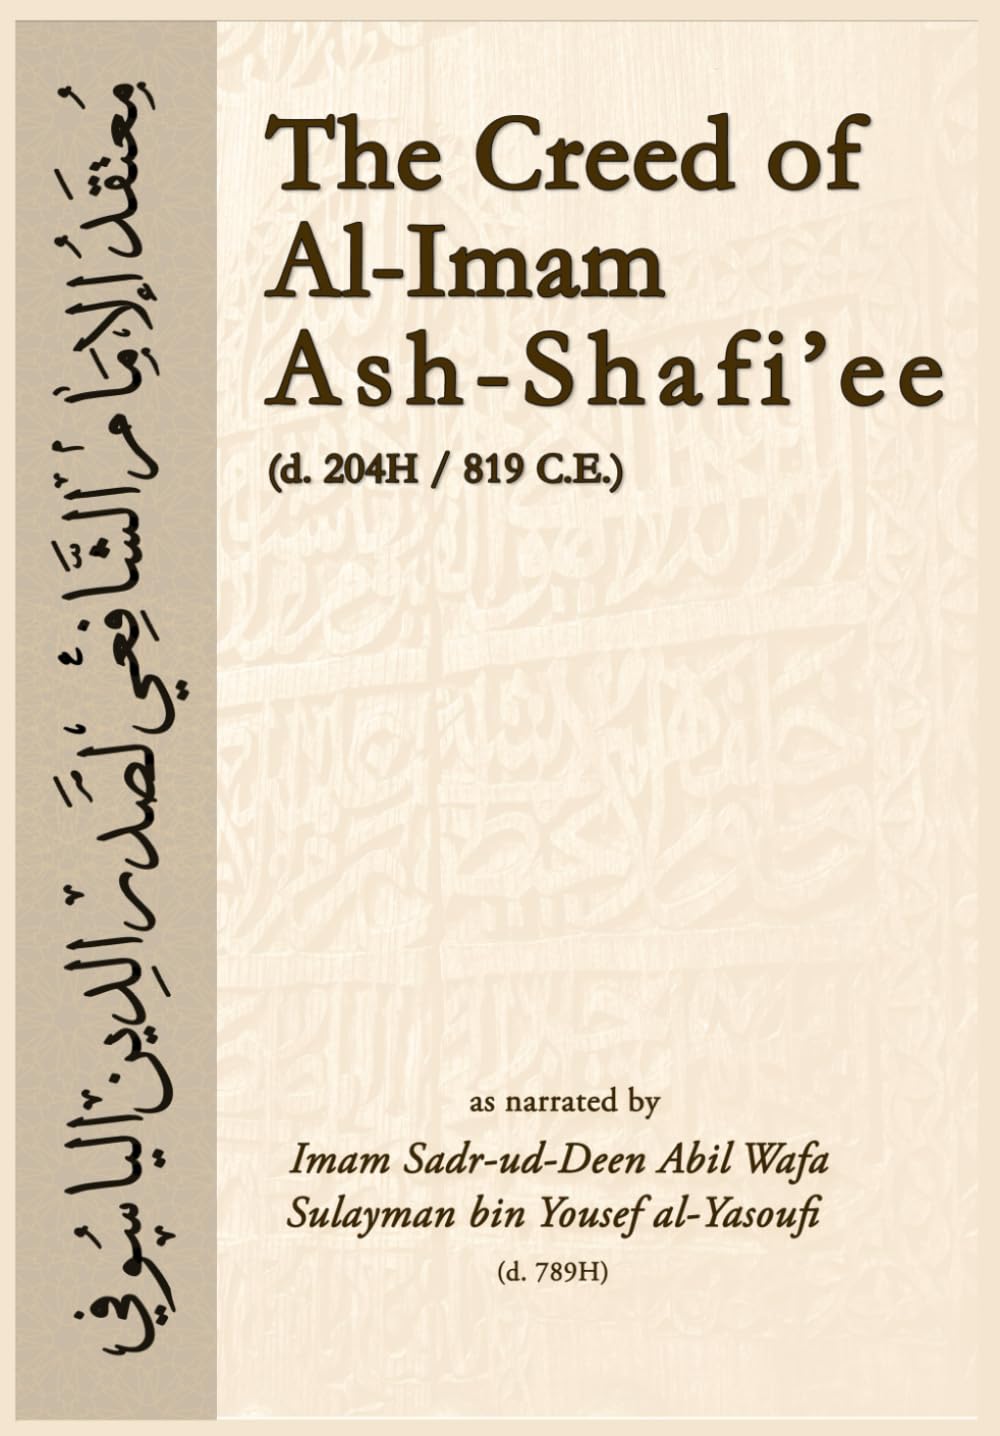 مُعتقَدُ الإِمَامِ الشَّافِعِي لصَدْرِ الدِّين اليَاسُوفي
The Creed of
Al-Imam
Ash-Shafi’ee
(d. 204H / 819 C.E.)
as narrated by
Imam Sadr-ud-Deen Abil Wafa
Sulayman bin Yousef al-Yasoufi
(d. 789H)